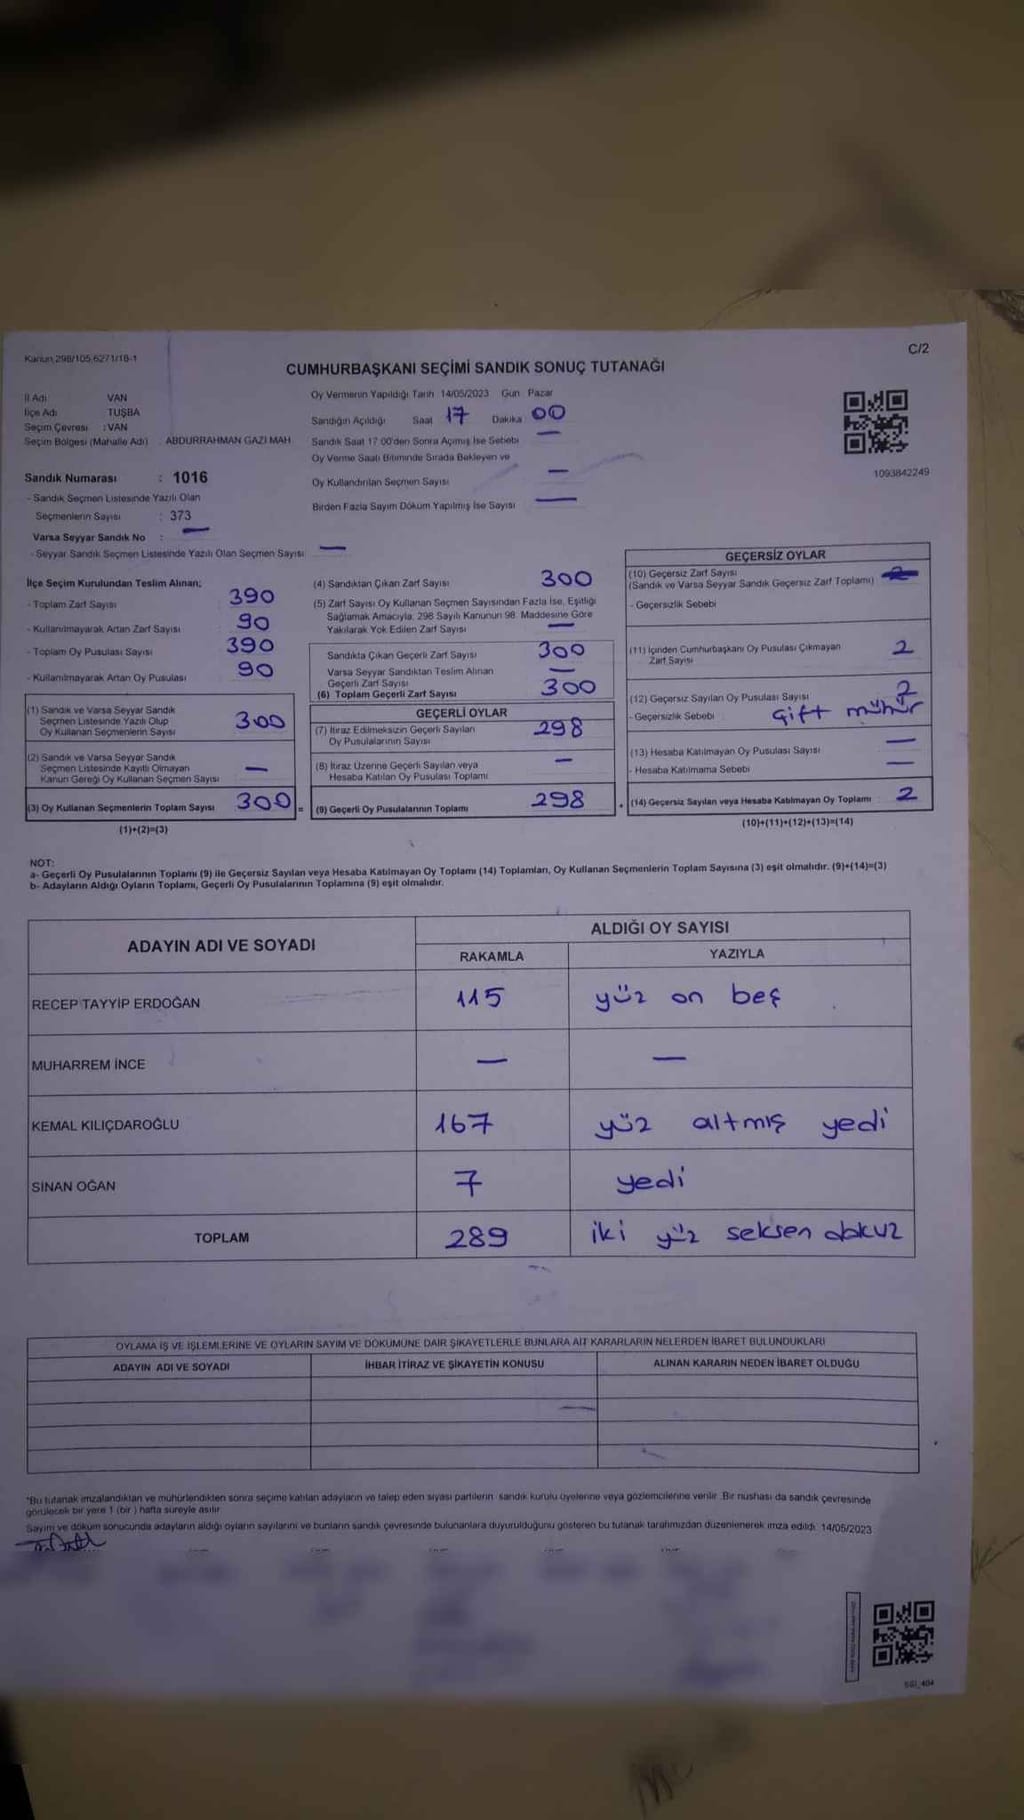 Kanun 298/105,6271/16-1
C/2
CUMHURBAŞKANI SEÇİMİ SANDIK SONUÇ TUTANAĞI
İl Adı VAN
İlçe Adı TUŞBA
Seçim Çevresi : VAN
Seçim Bölgesi (Mahalle Adı) ABDURRAHMAN GAZİ MAH.
Oy Vermenin Yapıldığı Tarih 14/05/2023 Gün Pazar
Sandığın Açıldığı Saat 17 Dakika 00
Sandık Saat 17 00'den Sonra Açımış İse Sebebi —
Oy Verme Saati Bitiminde Sırada Bekleyen ve
Oy Kullandırılan Seçmen Sayısı —
Birden Fazla Sayım Döküm Yapılmış İse Sayısı —
1093842249
Sandık Numarası : 1016
- Sandık Seçmen Listesinde Yazılı Olan
Seçmenlerin Sayısı : 373
Varsa Seyyar Sandık No : —
- Seyyar Sandık Seçmen Listesinde Yazılı Olan Seçmen Sayısı —
İlçe Seçim Kurulundan Teslim Alınan;
- Toplam Zarf Sayısı 390
- Kullanılmayarak Artan Zarf Sayısı 90
- Toplam Oy Pusulası Sayısı 390
- Kullanılmayarak Artan Oy Pusulası 90
(1) Sandık ve Varsa Seyyar Sandık
Seçmen Listesinde Yazılı Olup
Oy Kullanan Seçmenlerin Sayısı 300
(2) Sandık ve Varsa Seyyar Sandık
Seçmen Listesinde Kayıtlı Olmayan
Kanun Gereği Oy Kullanan Seçmen Sayısı —
(3) Oy Kullanan Seçmenlerin Toplam Sayısı 300 =
(1)+(2)=(3)
(4) Sandıktan Çıkan Zarf Sayısı 300
(5) Zarf Sayısı Oy Kullanan Seçmen Sayısından Fazla İse, Eşitliği
Sağlamak Amacıyla, 298 Sayılı Kanunun 98. Maddesine Göre
Yakılarak Yok Edilen Zarf Sayısı —
Sandıkta Çıkan Geçerli Zarf Sayısı 300
Varsa Seyyar Sandıktan Teslim Alınan
Geçerli Zarf Sayısı —
(6) Toplam Geçerli Zarf Sayısı 300
GEÇERLİ OYLAR
(7) İtiraz Edilmeksizin Geçerli Sayılan
Oy Pusulalarının Sayısı 298
(8) İtiraz Üzerine Geçerli Sayılan veya
Hesaba Katılan Oy Pusulası Toplamı —
(9) Geçerli Oy Pusulalarının Toplamı 298 +
GEÇERSİZ OYLAR
(10) Geçersiz Zarf Sayısı
(Sandık ve Varsa Seyyar Sandık Geçersiz Zarf Toplamı)
- Geçersizlik Sebebi
(11) İçinden Cumhurbaşkanı Oy Pusulası Çıkmayan
Zarf Sayısı 2
(12) Geçersiz Sayılan Oy Pusulası Sayısı 2
- Geçersizlik Sebebi Çift mühür
(13) Hesaba Katılmayan Oy Pusulası Sayısı —
- Hesaba Katılmama Sebebi —
(14) Geçersiz Sayılan veya Hesaba Katılmayan Oy Toplamı 2
(10)+(11)+(12)+(13)=(14)
NOT:
a- Geçerli Oy Pusulalarının Toplamı (9) ile Geçersiz Sayılan veya Hesaba Katılmayan Oy Toplamı (14) Toplamları, Oy Kullanan Seçmenlerin Toplam Sayısına (3) eşit olmalıdır. (9)+(14)=(3)
b- Adayların Aldığı Oyların Toplamı, Geçerli Oy Pusulalarının Toplamına (9) eşit olmalıdır.
ADAYIN ADI VE SOYADI
ALDIĞI OY SAYISI
RAKAMLA YAZIYLA
RECEP TAYYİP ERDOĞAN 115 yüz on beş
MUHARREM İNCE — —
KEMAL KILIÇDAROĞLU 167 yüz altmış yedi
SİNAN OĞAN 7 yedi
TOPLAM 289 iki yüz seksen dokuz
OYLAMA İŞ VE İŞLEMLERİNE VE OYLARIN SAYIM VE DÖKÜMÜNE DAİR ŞİKAYETLERLE BUNLARA AİT KARARLARIN NELERDEN İBARET BULUNDUKLARI
ADAYIN ADI VE SOYADI İHBAR İTİRAZ VE ŞİKAYETİN KONUSU ALINAN KARARIN NEDEN İBARET OLDUĞU
*Bu tutanak imzalandıktan ve mühürlendikten sonra seçime katılan adayların ve talep eden siyasi partilerin sandık kurulu üyelerine veya gözlemcilerine verilir. Bir nüshası da sandık çevresinde
görülecek bir yere 1 (bir) hafta süreyle asılır.
Sayım ve döküm sonucunda adayların aldığı oyların sayılarını ve bunların sandık çevresinde bulunanlara duyurulduğunu gösteren bu tutanak tarafımızdan düzenlenerek imza edildi. 14/05/2023